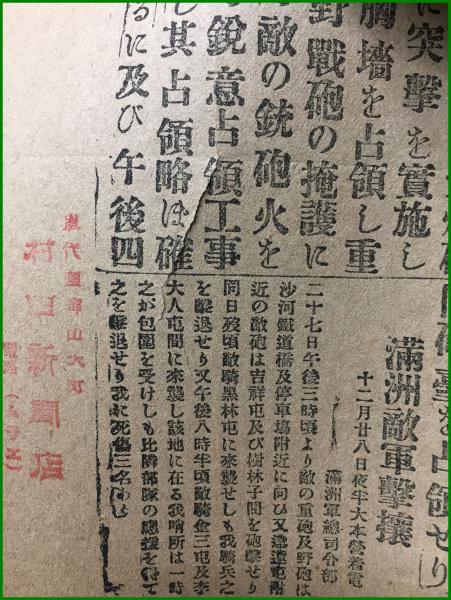 に突撃を實施し
胸墻を占領し重
野戰砲の掩護に
敵の銃砲火を
銳意占領工事
し其占領略ぼ確
るに及び午後四
砲臺を占領せり
滿洲敵軍擊攘
十二月廿八日夜半大本營着電
滿洲軍總司令部
二十七日午後三時頃より敵の重砲及野砲は
沙河鐵道橋及停車塲附近に向ひ又
近の敵砲は吉祥屯及び樹林子間を砲擊せり
同日歿頃敵騎黑林屯に來襲せしも我騎兵之
を擊退せり又午後八時半頃敵騎金三屯及李
大人屯間に來襲し該地に在る我哨所は一時
之が包圍を受けしも比隣部隊の應援を得て
之を擊退せり我に死傷三名
山大
新聞店